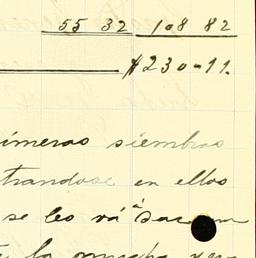 55 32 108 82
$230-11.
imeras siembras
trandose en ellos
se les vá a sac